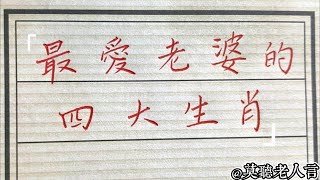 「最愛老婆的
四大生肖」
@莫聽老人言